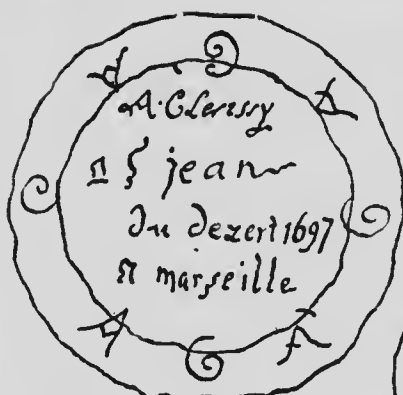 A·Clerissy
a S jean
du dezert 1697
a marseille